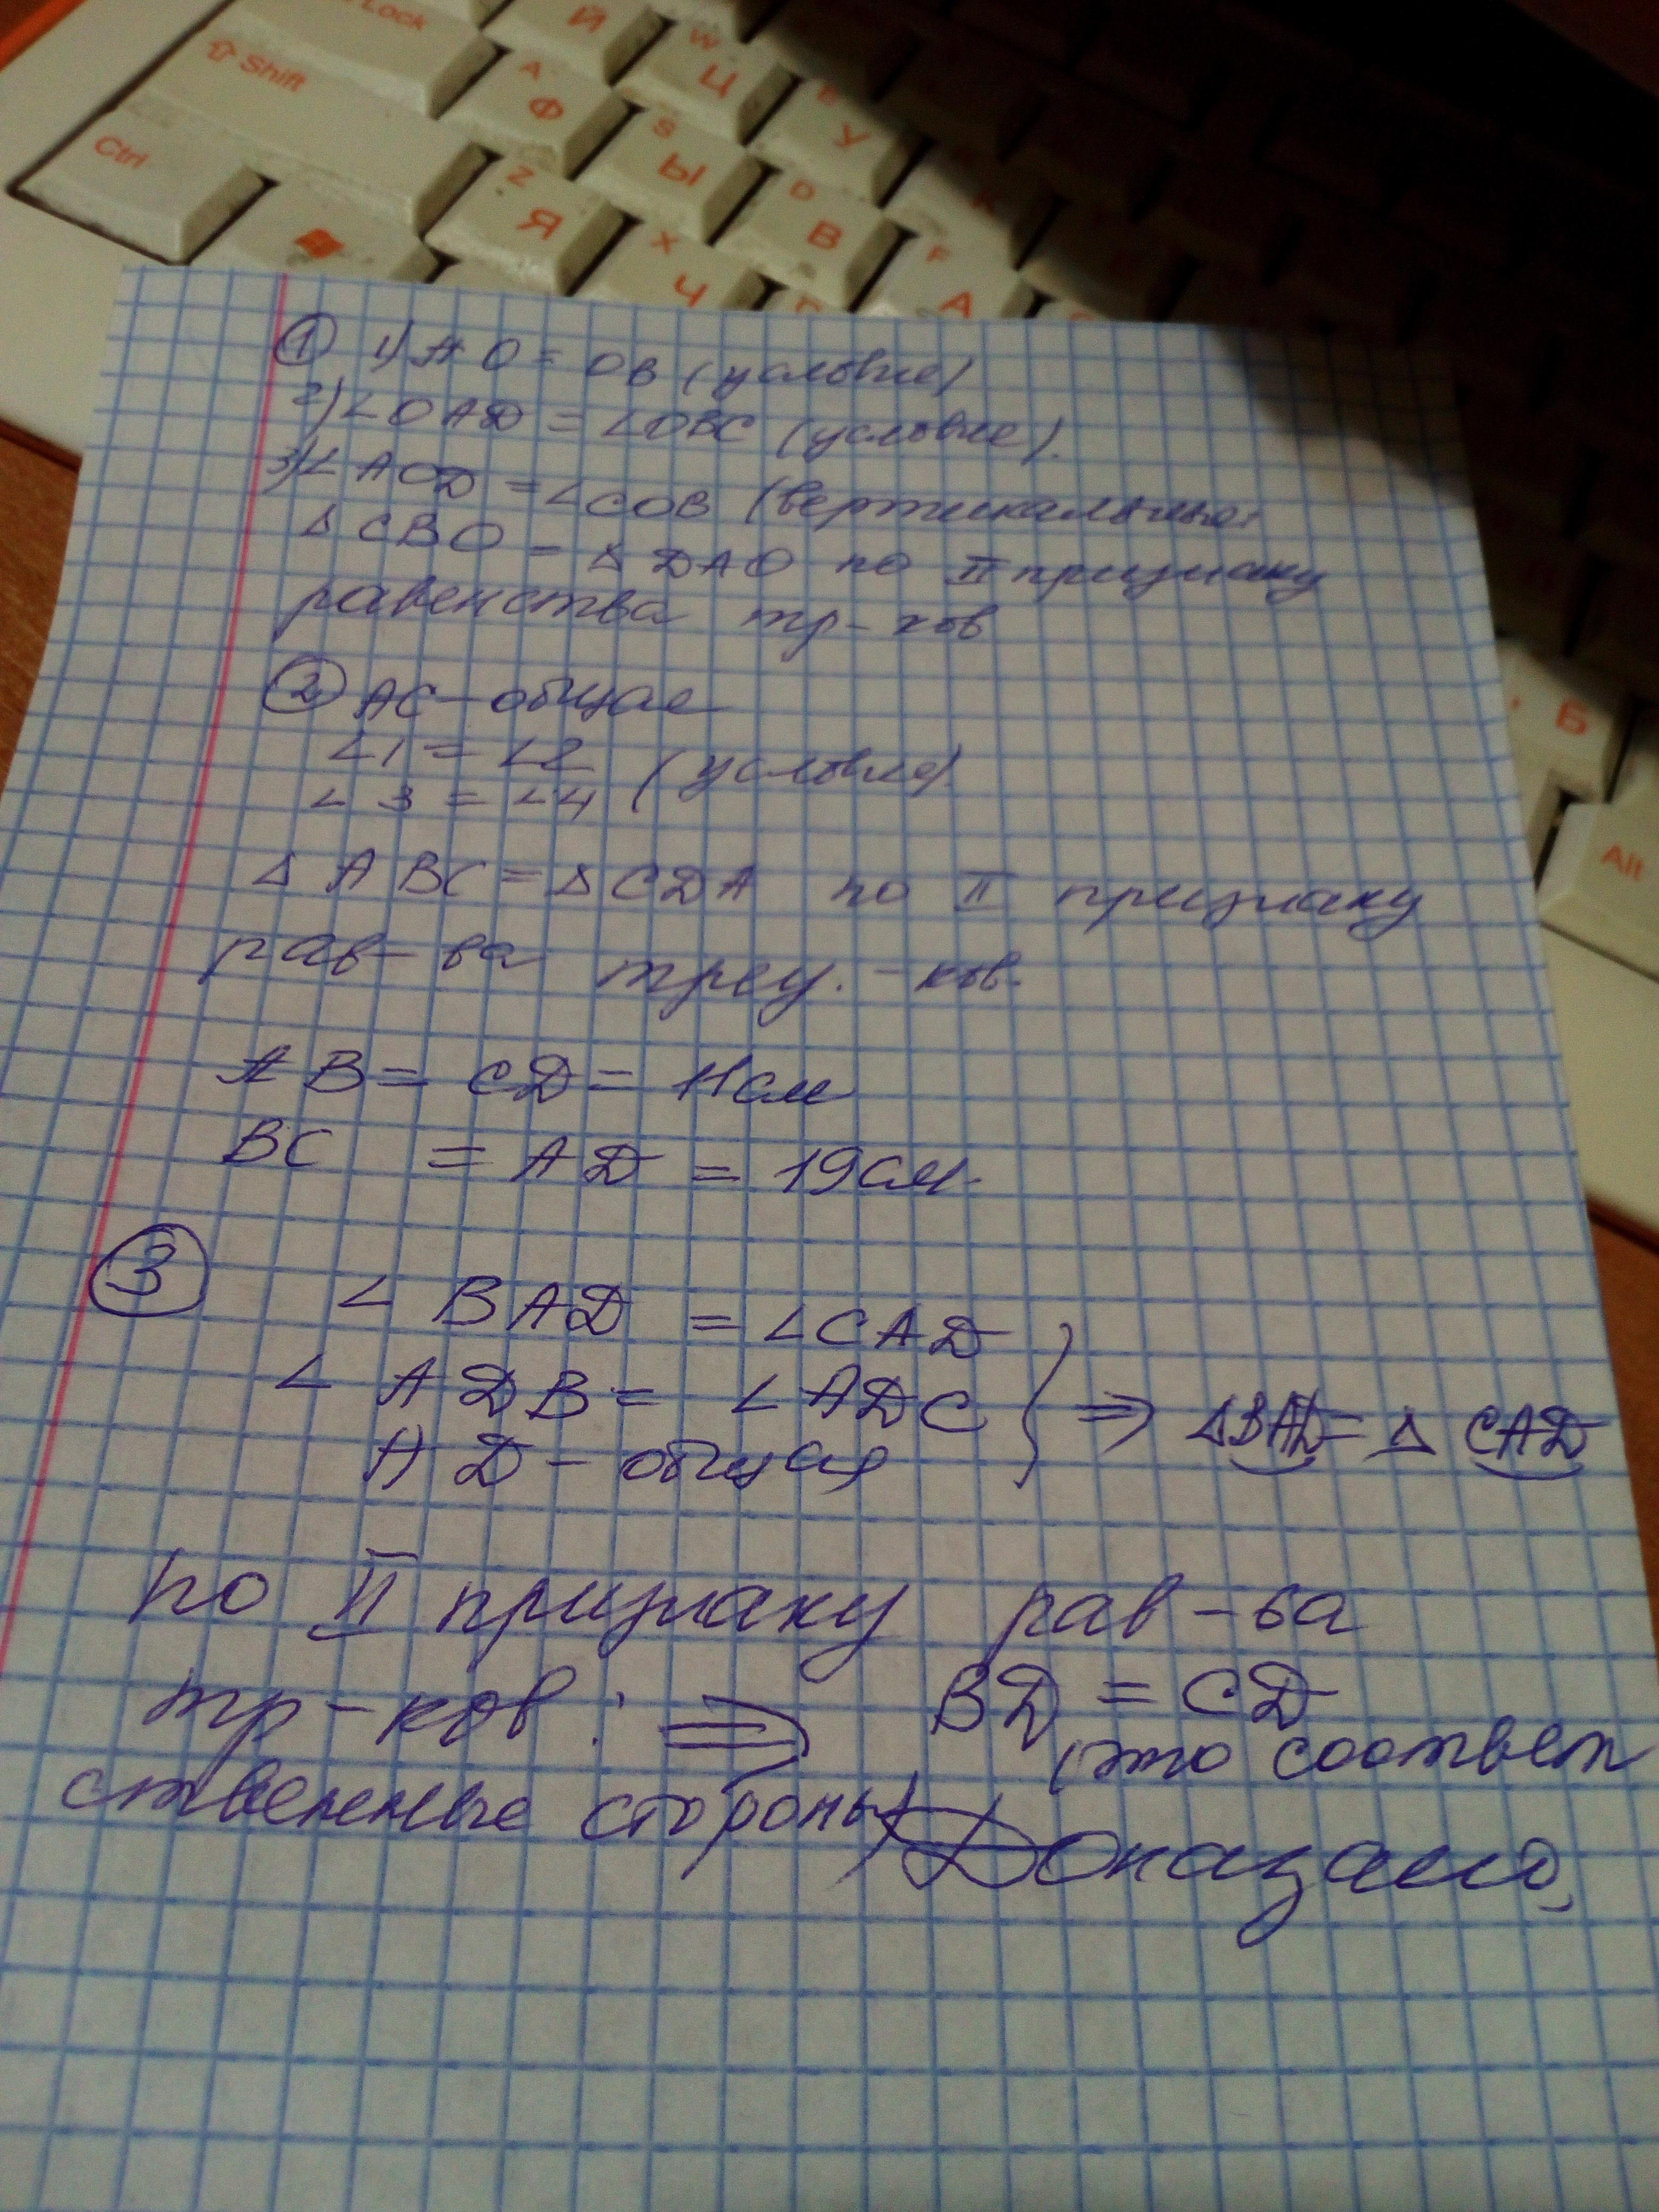 Lock
Shift
Ctrl
Й
W Ц
E У
A Ф
S Ы
D В
F А
Z Я
X Ч
Б
Alt
① 1) AO = OB (условие)
2) ∠OAD = ∠OBC (условие).
3) ∠AOD = ∠COB (вертикальные)
Δ CBO = Δ DAO по II признаку
равенства тр-ков
② AC - общая
∠1 = ∠2
∠3 = ∠4 (условие)
Δ ABC = Δ CDA по II признаку
рав-ва треу.-ков.
AB = CD = 11см
BC = AD = 19см.
③ ∠ BAD = ∠CAD
∠ ADB = ∠ADC } ⇒ ΔBAD = Δ CAD
AD - общая
по II признаку рав-ва
тр-ков: ⇒ BD = CD
(это соответ
ственные стороны) Доказано.